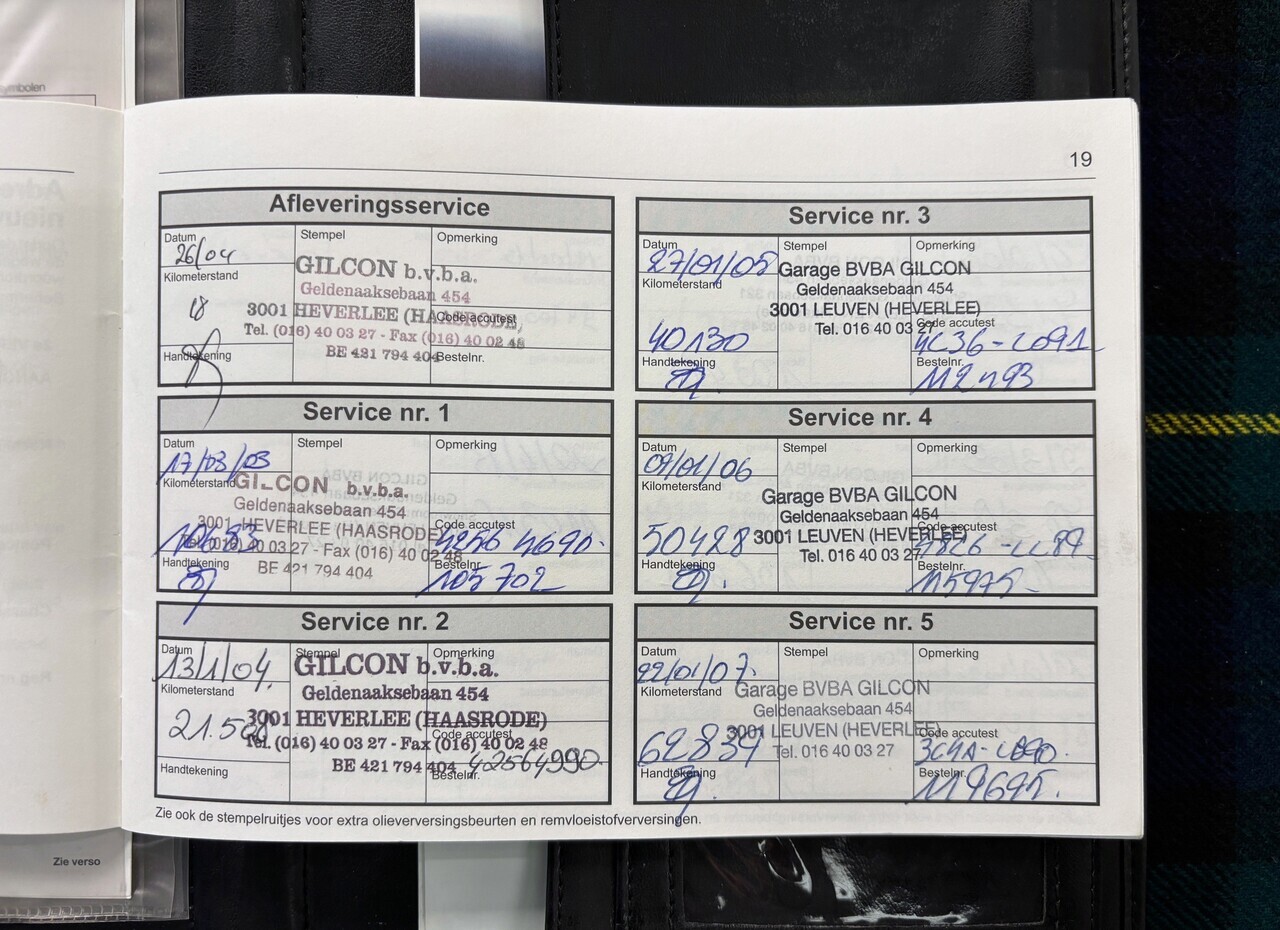 symbolen
19
Afleveringsservice
Datum
26/04
Stempel
Opmerking
Kilometerstand
18
GILCON b.v.b.a.
Geldenaaksebaan 454
3001 HEVERLEE (HAASRODE)
Tel. (016) 40 03 27 - Fax (016) 40 02 48
BE 421 794 404
Code accutest
Handtekening
Bestelnr.
Service nr. 1
Datum
17/03/03
Stempel
Opmerking
Kilometerstand
GILCON b.v.b.a.
Geldenaaksebaan 454
3001 HEVERLEE (HAASRODE)
(016) 40 03 27 - Fax (016) 40 02 48
BE 421 794 404
Code accutest
Handtekening
Bestelnr.
105702
Service nr. 2
Datum
13/1/04
Stempel
Opmerking
Kilometerstand
GILCON b.v.b.a.
Geldenaaksebaan 454
3001 HEVERLEE (HAASRODE)
Tel. (016) 40 03 27 - Fax (016) 40 02 48
BE 421 794 404
Code accutest
40564990
Handtekening
Bestelnr.
Service nr. 3
Datum
27/01/05
Stempel
Opmerking
Kilometerstand
40130
Garage BVBA GILCON
Geldenaaksebaan 454
3001 LEUVEN (HEVERLEE)
Tel. 016 40 03 27
Code accutest
4C36-L091
Handtekening
Bestelnr.
112493
Service nr. 4
Datum
09/01/06
Stempel
Opmerking
Kilometerstand
50428
Garage BVBA GILCON
Geldenaaksebaan 454
3001 LEUVEN (HEVERLEE)
Tel. 016 40 03 27
Code accutest
Handtekening
Bestelnr.
115975
Service nr. 5
Datum
22/01/07
Stempel
Opmerking
Kilometerstand
62839
Garage BVBA GILCON
Geldenaaksebaan 454
3001 LEUVEN (HEVERLEE)
Tel. 016 40 03 27
Code accutest
3C4A-L090
Handtekening
Bestelnr.
119695
Zie ook de stempelruitjes voor extra olieverversingsbeurten en remvloeistofverversingen.
Zie verso